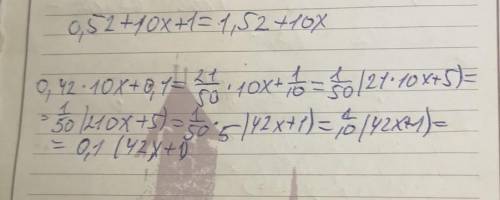 0,52+10x+1=1,52+10x
0,42·10x+0,1=21/50·10x+1/10=1/50(21·10x+5)=
=1/50(210x+5)=1/50·5(42x+1)=1/10(42x+1)=
=0,1(42x+1)